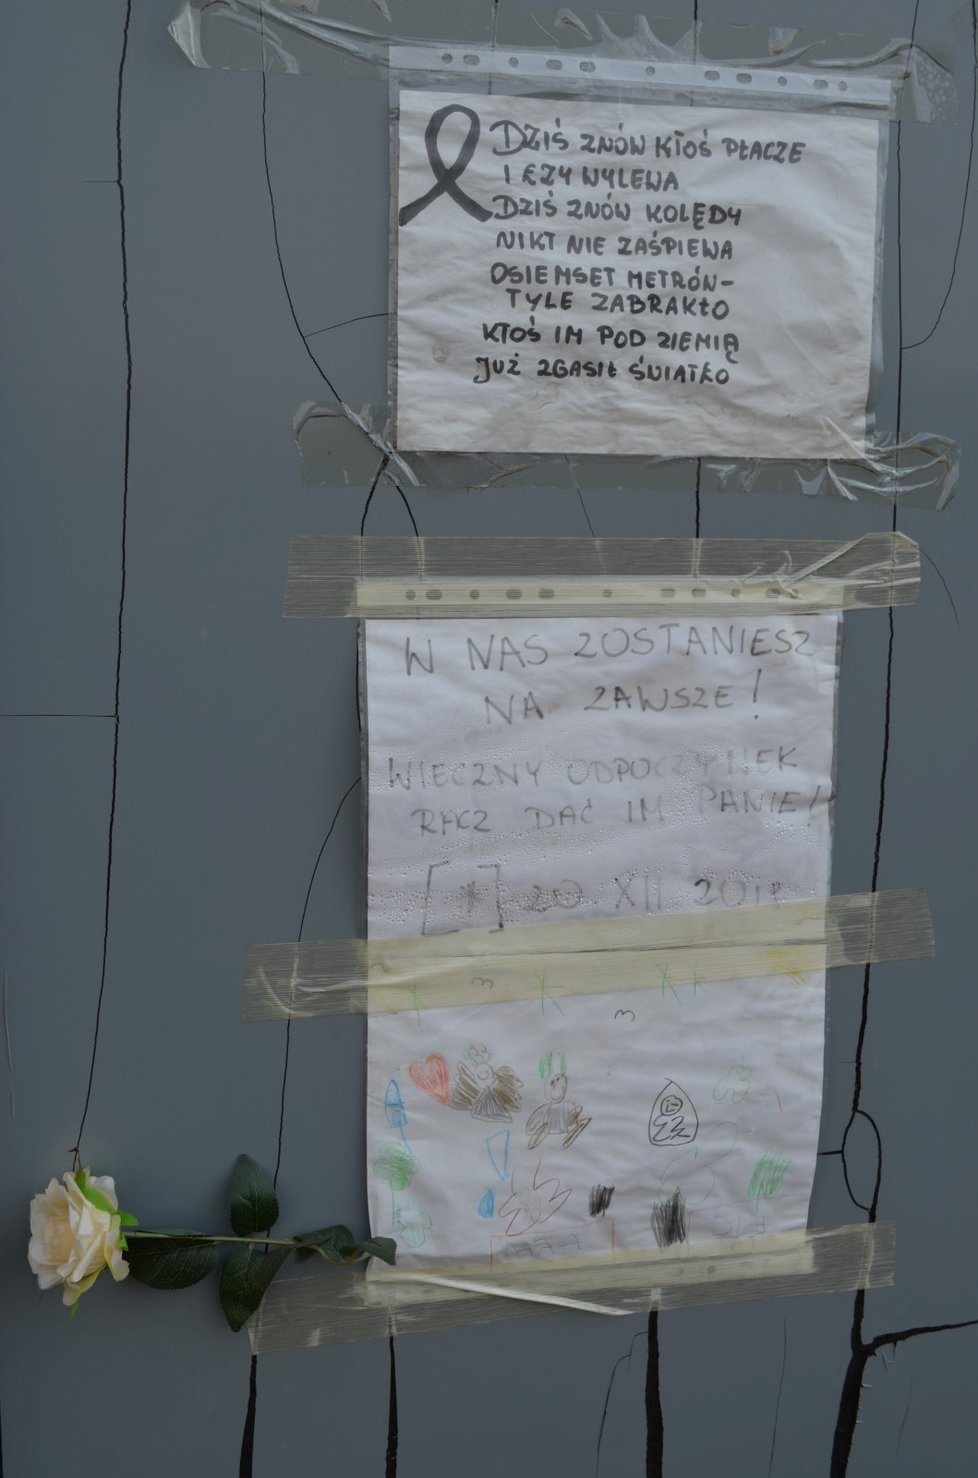 DZIŚ ZNÓW KTOŚ PŁACZE
I ŁZY WYLEWA
DZIŚ ZNÓW KOLĘDY
NIKT NIE ZAŚPIEWA
OSIEMSET METRÓW-
TYLE ZABRAKŁO
KTOŚ IM POD ZIEMIĄ
JUŻ ZGASIŁ ŚWIATŁO
W NAS ZOSTANIESZ
NA ZAWSZE!
WIECZNY ODPOCZYNEK
RACZ DAĆ IM PANIE!
[*] 20 XII 2018